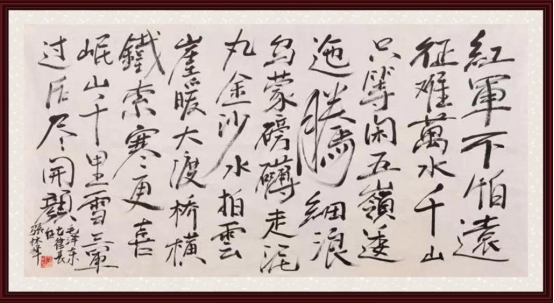 紅軍不怕遠
征难萬水千山
只等闲五嶺逶
迤騰细浪
烏蒙磅礴走泥
丸金沙水拍雲
崖暖大渡桥横
鐵索寒更喜
岷山千里雪三軍
过后尽開顔
毛泽东
七律長
征
張